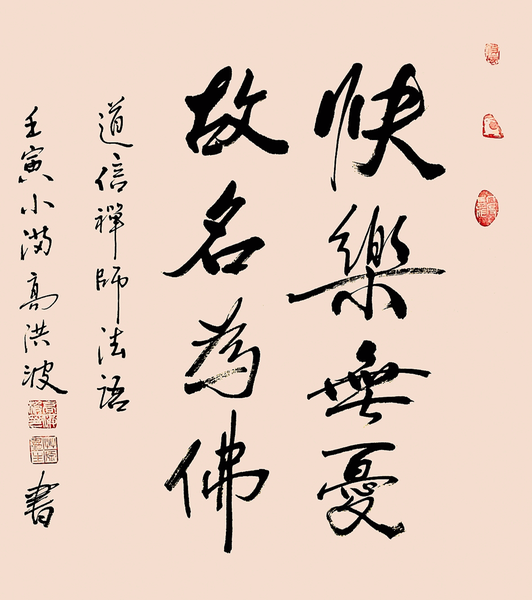 快樂無憂
故名為佛
道信禪師法語
壬寅小滿高洪波
書